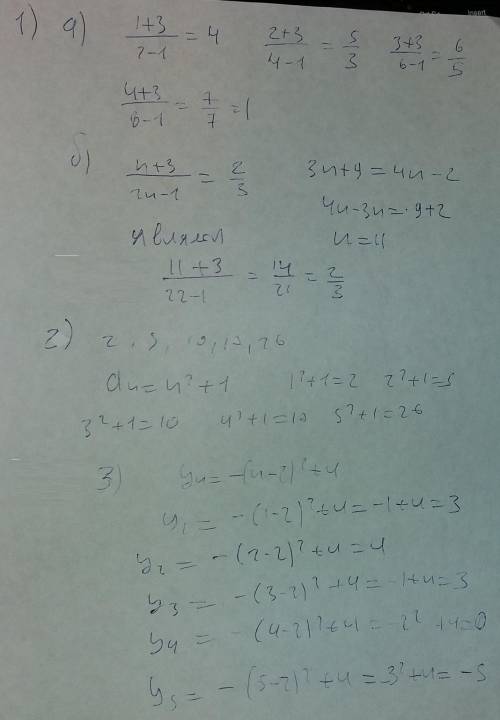 1) a) (1+3)/(2-1) = 4 (2+3)/(4-1) = 5/3 (3+3)/(6-1) = 6/5
(4+3)/(8-1) = 7/7 = 1
б) (n+3)/(2n-1) = 2/3 3n+9=4n-2
4n-3n=9+2
является n=11
(11+3)/(22-1) = 14/21 = 2/3
2) 2, 5, 10, 17, 26
an=n²+1 1²+1=2 2²+1=5
3²+1=10 4²+1=17 5²+1=26
3) yn=-(n-2)²+4
y1=-(1-2)²+4=-1+4=3
y2=-(2-2)²+4=4
y3=-(3-2)²+4=-1+4=3
y4=-(4-2)²+4=-2²+4=0
y5=-(5-2)²+4=3²+4=-5